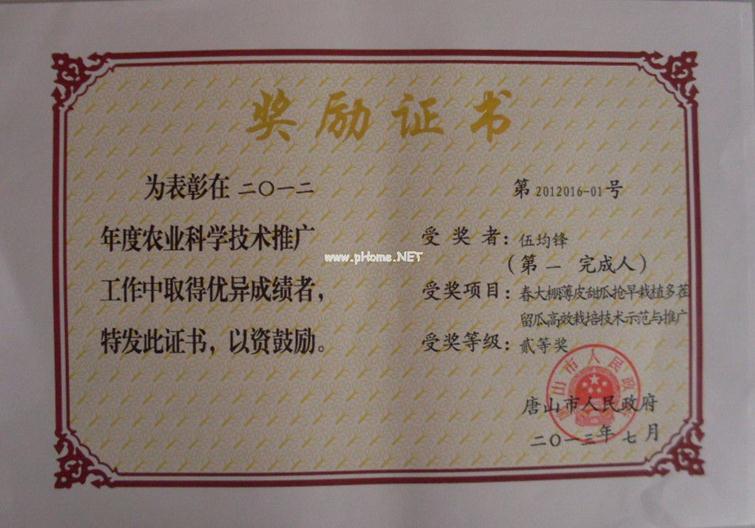 奖励证书
为表彰在 二〇一二
年度农业科学技术推广
工作中取得优异成绩者，
特发此证书，以资鼓励。
第2012016-01号
受奖者：伍均锋
（第一 完成人）
受奖项目：春大棚薄皮甜瓜抢早栽植多茬
留瓜高效栽培技术示范与推广
受奖等级：贰等奖
唐山市人民政府
二〇一三年七月
www.pHome.NET